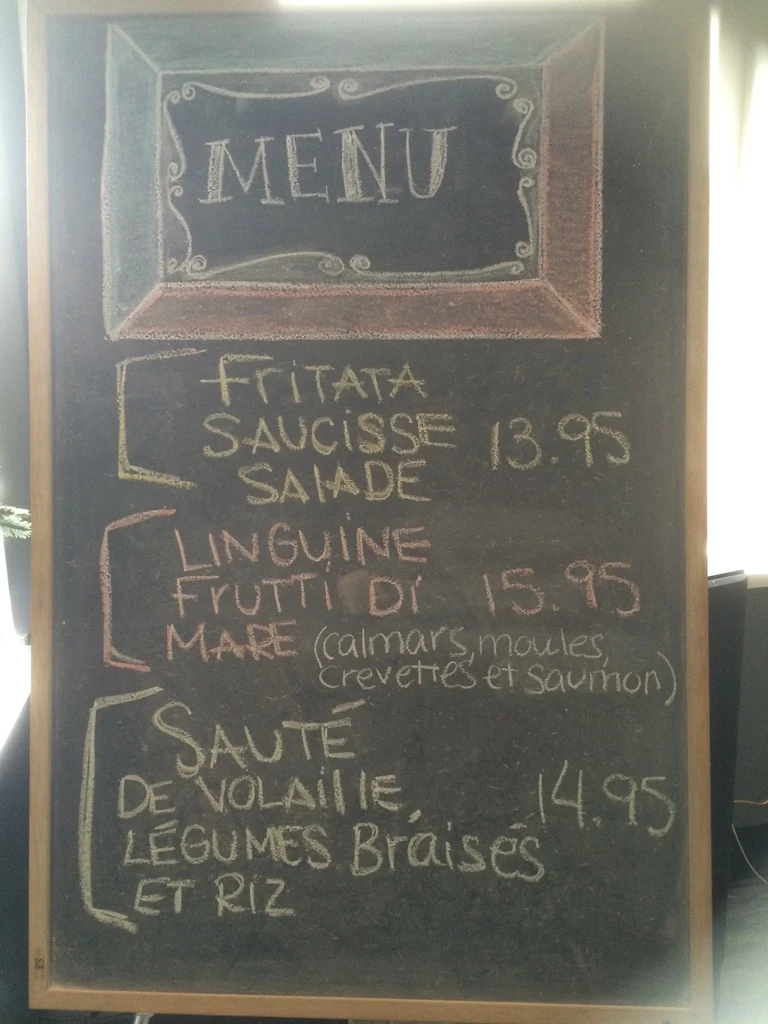 MENU
FRITATA
SAUCISSE 13.95
SALADE
LINGUINE
FRUTTI DI 15.95
MARE (calmars, moules,
crevettes et saumon)
SAUTÉ
DE VOLAILLE, 14.95
LÉGUMES Braisés
ET RIZ